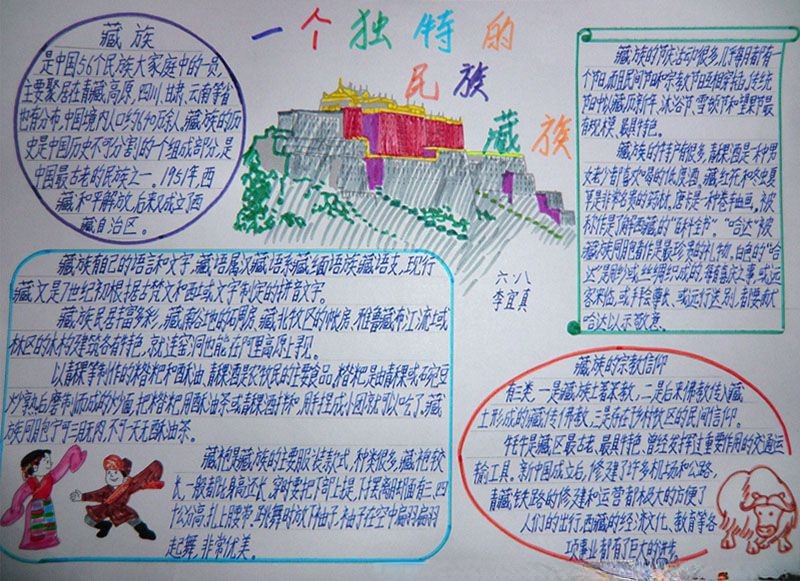 一个独特的
民族
藏族
藏族
是中国56个民族大家庭中的一员,
主要聚居在青藏高原,四川、甘肃、云南等省
也有分布,中国境内人口约640万余人。藏族的历
史是中国历史不可分割的一个组成部分,是
中国最古老的民族之一。1951年,西
藏和平解放,后来又成立了西
藏自治区。
六·八
李宜真
藏族的节庆活动很多,几乎每月都有一
个节日,而且民间节日和宗教节日互相穿插,传统
节日中以藏历新年、沐浴节、雪顿节和望果节最
有规模、最具特色。
藏族的特产有很多,青稞酒是一种男
女老少都喜欢喝的低度酒。藏红花和冬虫夏
草是非常名贵的药材。唐卡是一种卷轴画,被
称作是了解西藏的“百科全书”。“哈达”被
藏族同胞看作是最珍贵的礼物。白色的“哈
达”是用纱或丝绸织成的,每有喜庆之事,或远
客来临,或拜会尊长、或远行送别,都要献
哈达以示敬意。
藏族有自己的语言和文字,藏语属汉藏语系藏缅语族藏语支,现行
藏文是7世纪初根据古梵文和西域文字制定的拼音文字。
藏族民居丰富多彩,藏南谷地的碉房、藏北牧区的帐房、雅鲁藏布江流域
林区的木构建筑各有特色,就连窑洞也能在阿里高原上寻见。
以青稞等制作的糌粑和酥油、青稞酒是农牧民的主要食品。糌粑是由青稞或豌豆
炒熟后磨制而成的炒面,把糌粑用酥油茶或青稞酒拌和,用手捏成小团就可以吃了。藏
族同胞宁可三月无肉,不可一天无酥油茶。
藏袍是藏族的主要服装款式,种类很多,藏袍较
长,一般都比身高还长,穿时要把下部上提,下摆离脚面有三、四
十公分高,扎上腰带。跳舞时放下袖子,袖子在空中翩翩
起舞,非常优美。
藏族的宗教信仰
有三类。一是藏族土著苯教,二是后来佛教传入藏
土形成的藏传佛教,三是存在于乡村牧区的民间信仰。
牦牛是藏区最古老、最具特色、曾经发挥过重要作用的交通运
输工具。新中国成立后,修建了许多机场和公路,
青藏铁路的修建和运营都极大的方便了
人们的出行,西藏的经济文化、教育等各
项事业都有了巨大的进步。